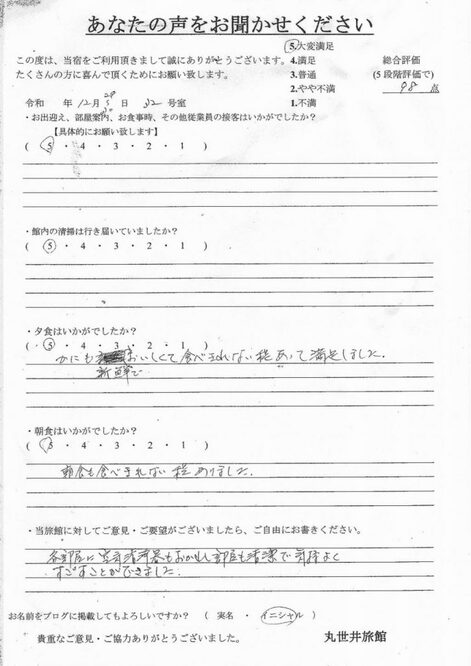 あなたの声をお聞かせください
この度は、当宿をご利用頂きまして誠にありがとうございます。
たくさんの方に喜んで頂くためにお願い致します。
5.大変満足
4.満足
3.普通
2.やや不満
1.不満
総合評価
(5段階評価で)
98 点
令和 年 12月 29 30 日 32 号室
・お出迎え、部屋案内、お食事時、その他従業員の接客はいかがでしたか?
【具体的にお願い致します】
( 5 ・ 4 ・ 3 ・ 2 ・ 1 )
・館内の清掃は行き届いていましたか?
( 5 ・ 4 ・ 3 ・ 2 ・ 1 )
・夕食はいかがでしたか?
( 5 ・ 4 ・ 3 ・ 2 ・ 1 )
かにも おいしくて食べきれない程あって満足しました.
新鮮で
・朝食はいかがでしたか?
( 5 ・ 4 ・ 3 ・ 2 ・ 1 )
朝食も食べきれない程ありました.
・当旅館に対してご意見・ご要望がございましたら、ご自由にお書きください。
各部屋に空気清浄器もおかれ部屋も清潔で気持よく
すごすことができました.
お名前をブログに掲載してもよろしいですか? ( 実名 ・ イニシャル )
貴重なご意見・ご協力ありがとうございました。
丸世井旅館